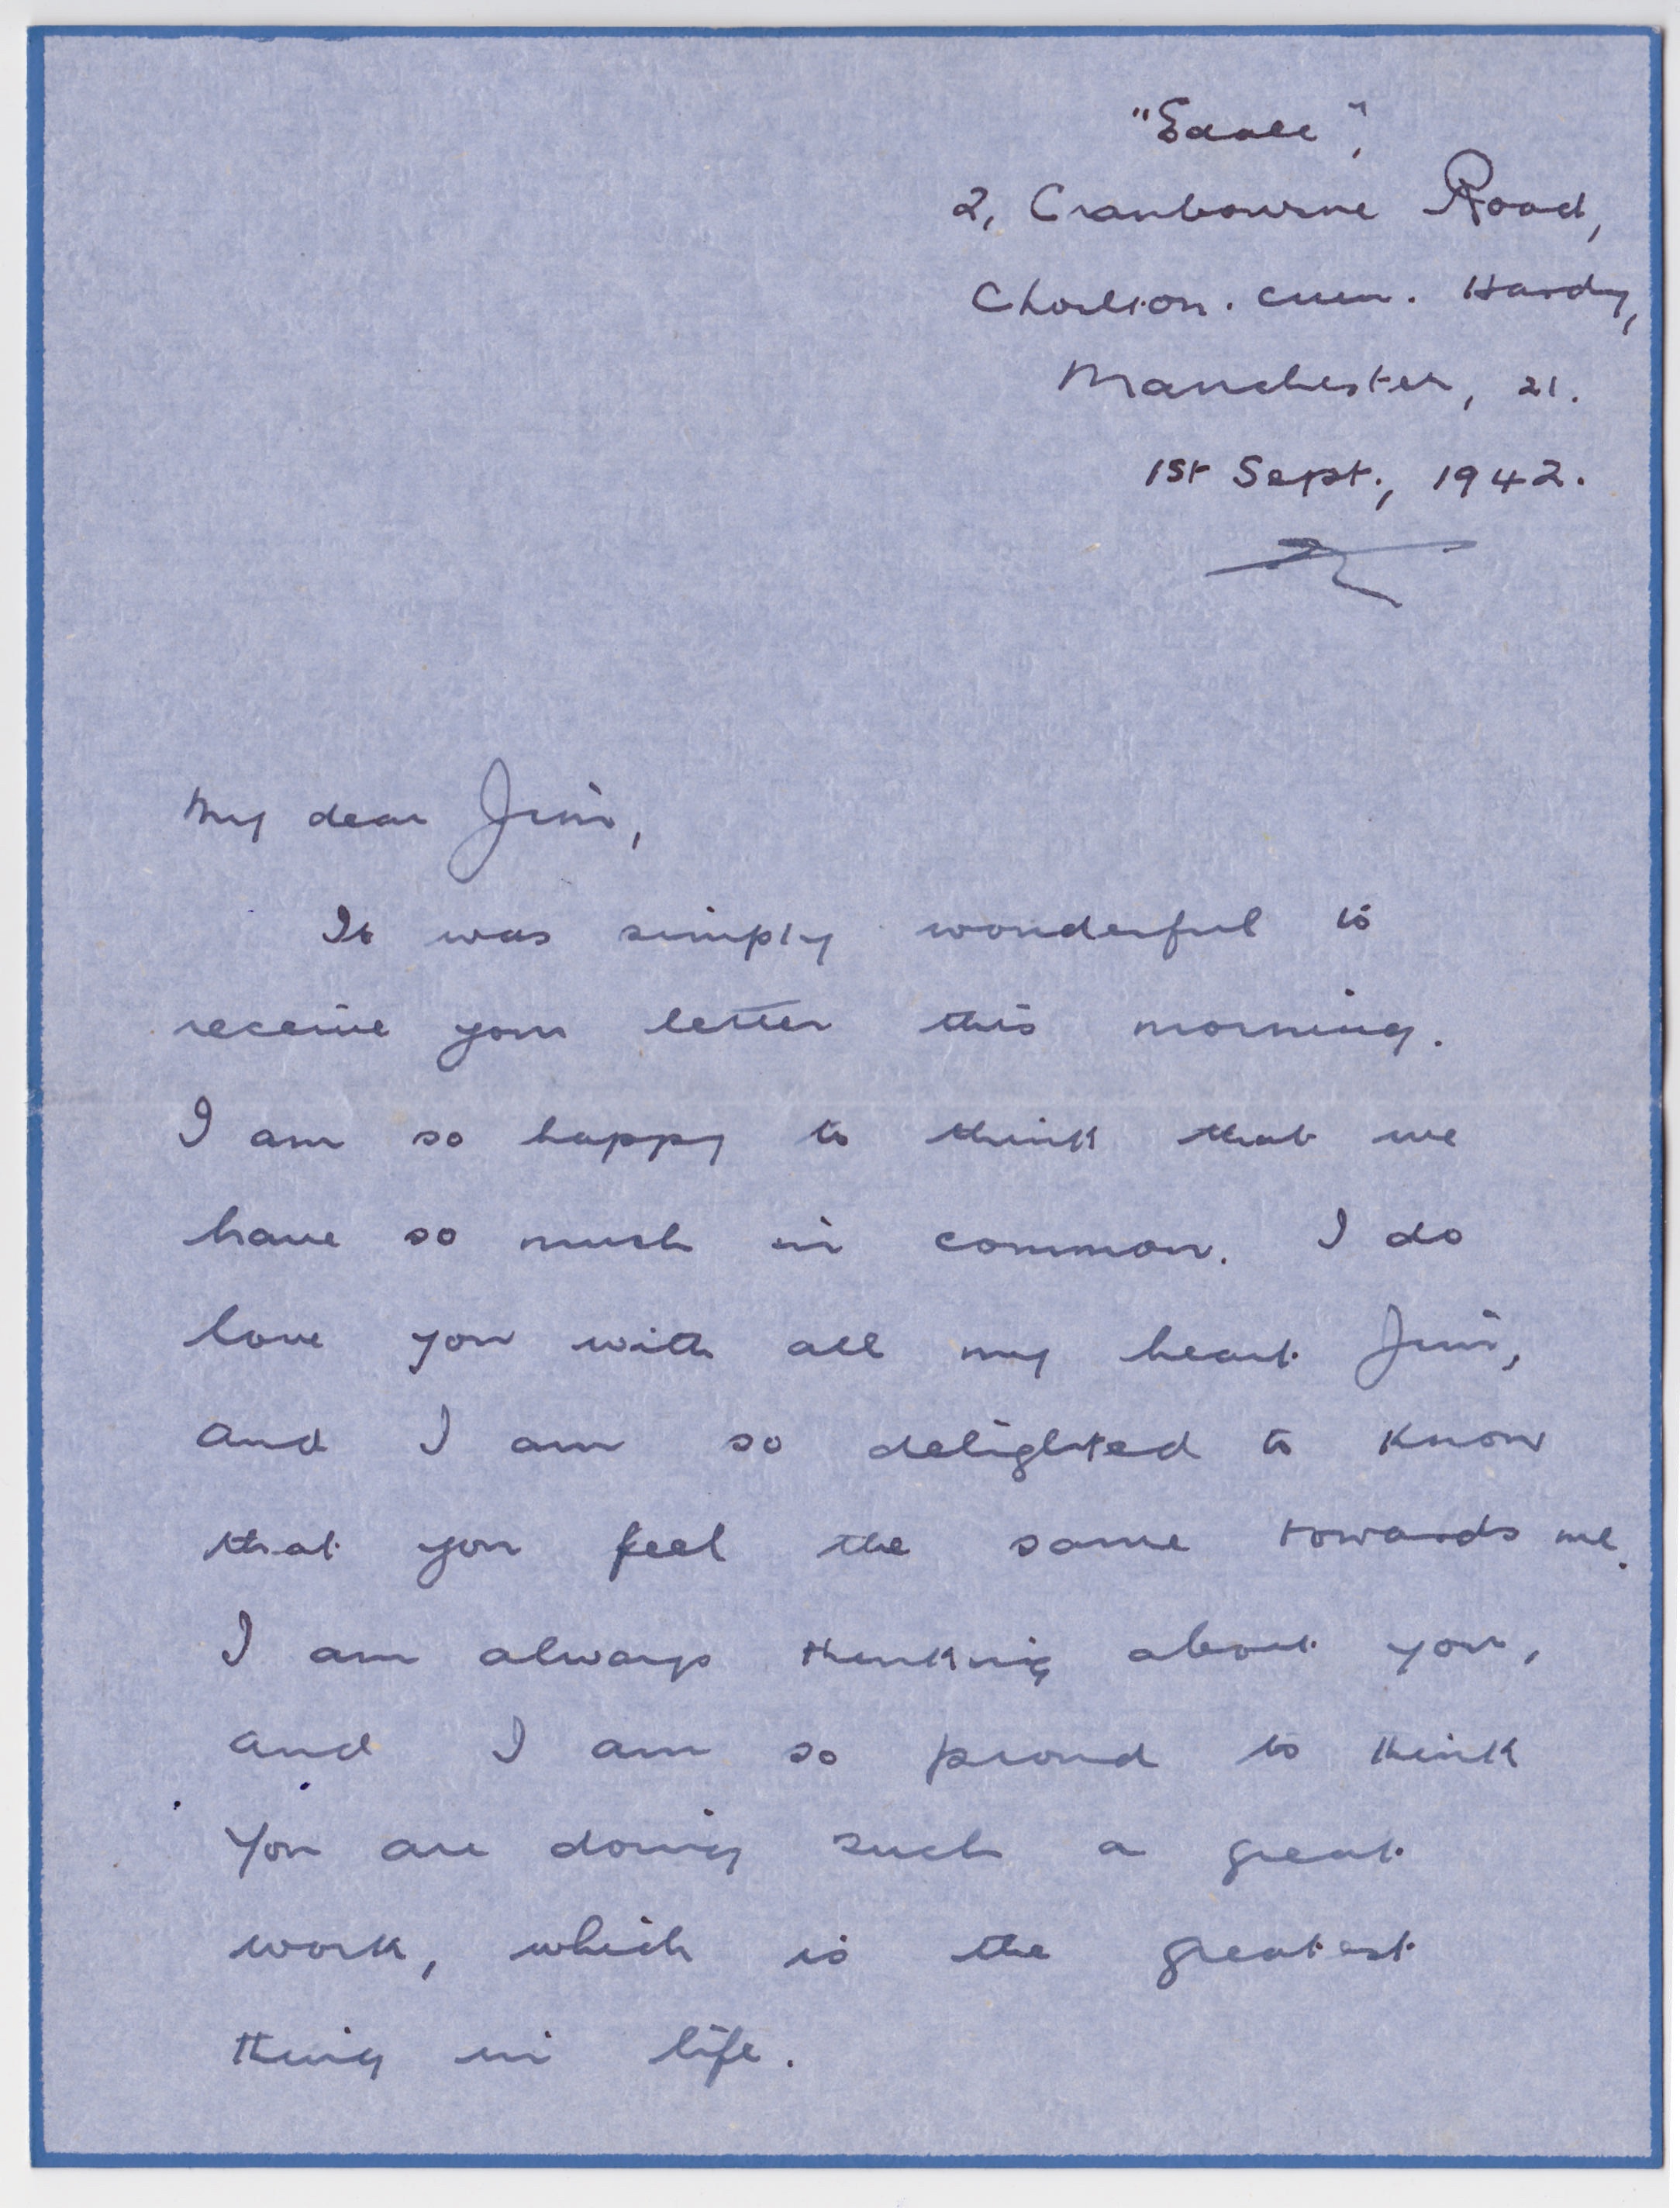 "Edale",
2, Cranbourne Road,
Chorlton. cum. Hardy,
Manchester, 21.
1st Sept., 1942.
My dear Jim,
It was simply wonderful to
receive your letter this morning.
I am so happy to think that we
have so much in common. I do
love you with all my heart Jim,
and I am so delighted to know
that you feel the same towards me.
I am always thinking about you,
and I am so proud to think
you are doing such a great
work, which is the greatest
thing in life.